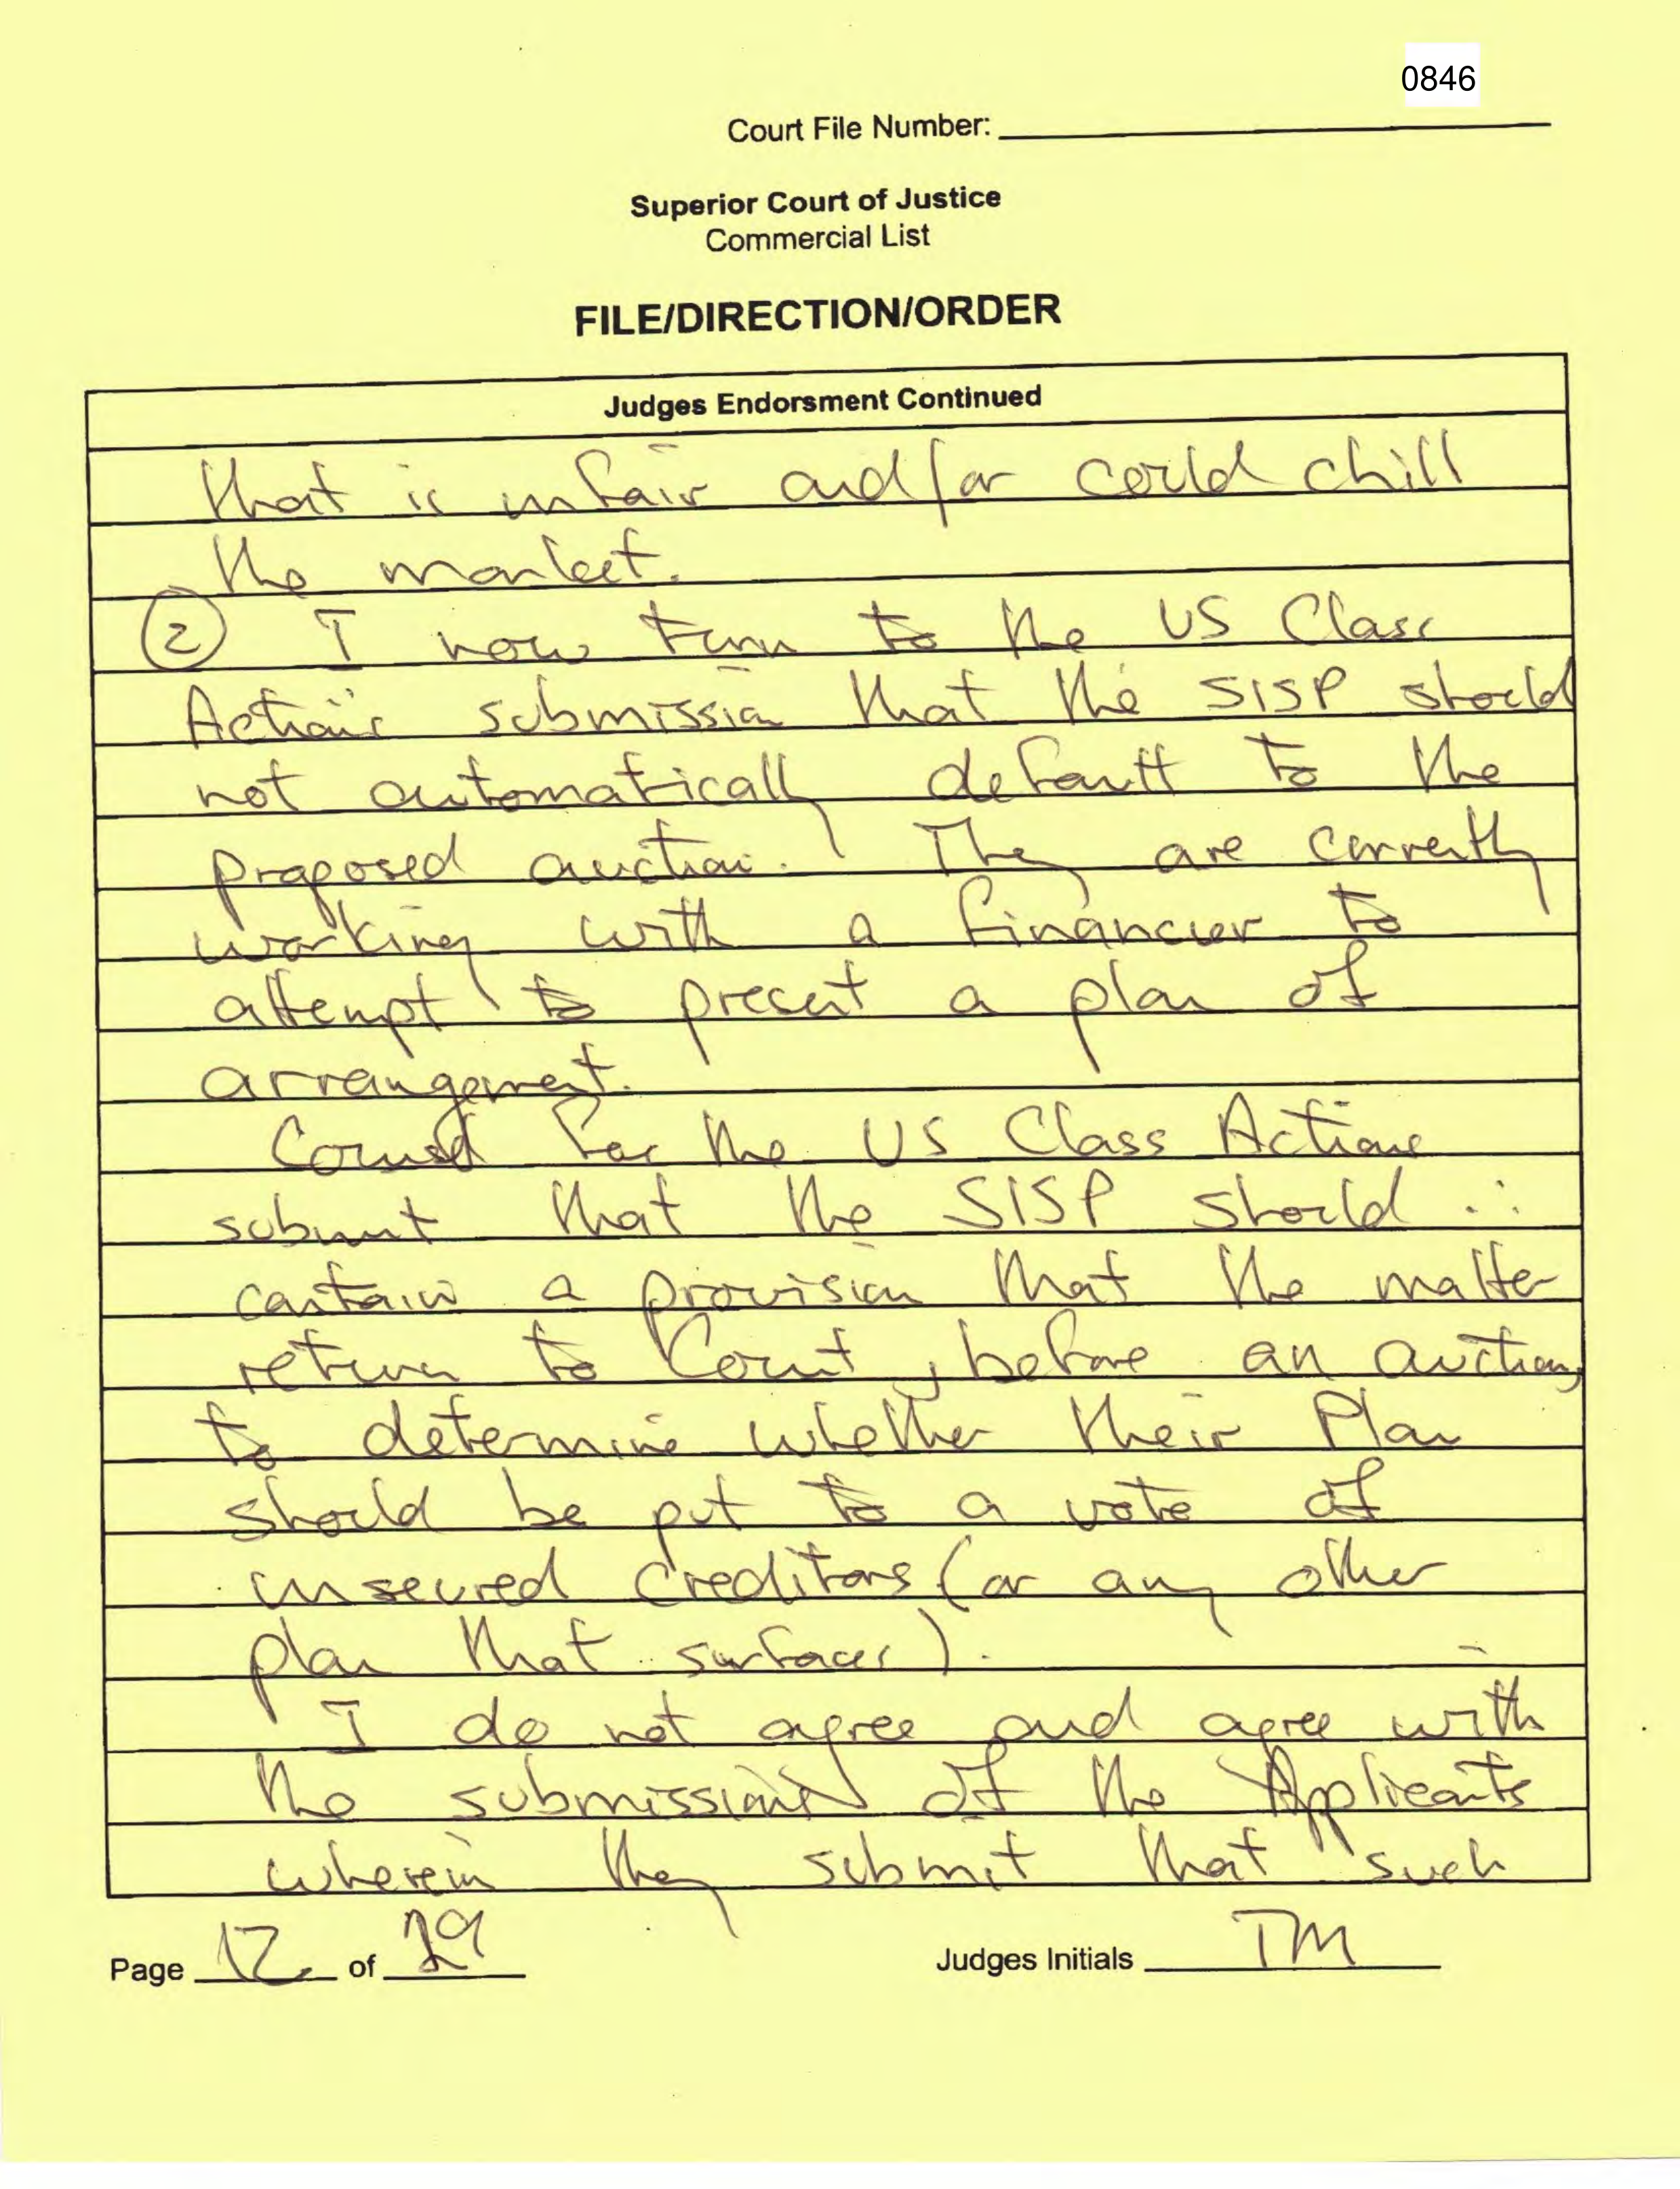 0846
Court File Number:
Superior Court of Justice
Commercial List
FILE/DIRECTION/ORDER
Judges Endorsment Continued
that is unfair and/or could chill
the market.
② I now turn to the US Class
Action's submission that the SISP should
not automatically default to the
proposed auction. They are currently
working with a financier to
attempt to present a plan of
arrangement.
Counsel for the US Class Actions
submit that the SISP should ∴
contain a provision that the matter
return to Court, before an auction,
to determine whether their Plan
should be put to a vote of
unsecured creditors (or any other
plan that surfaces).
I do not agree and agree with
the submissions of the Applicants
wherein they submit that such
Page 12 of 29
Judges Initials TM